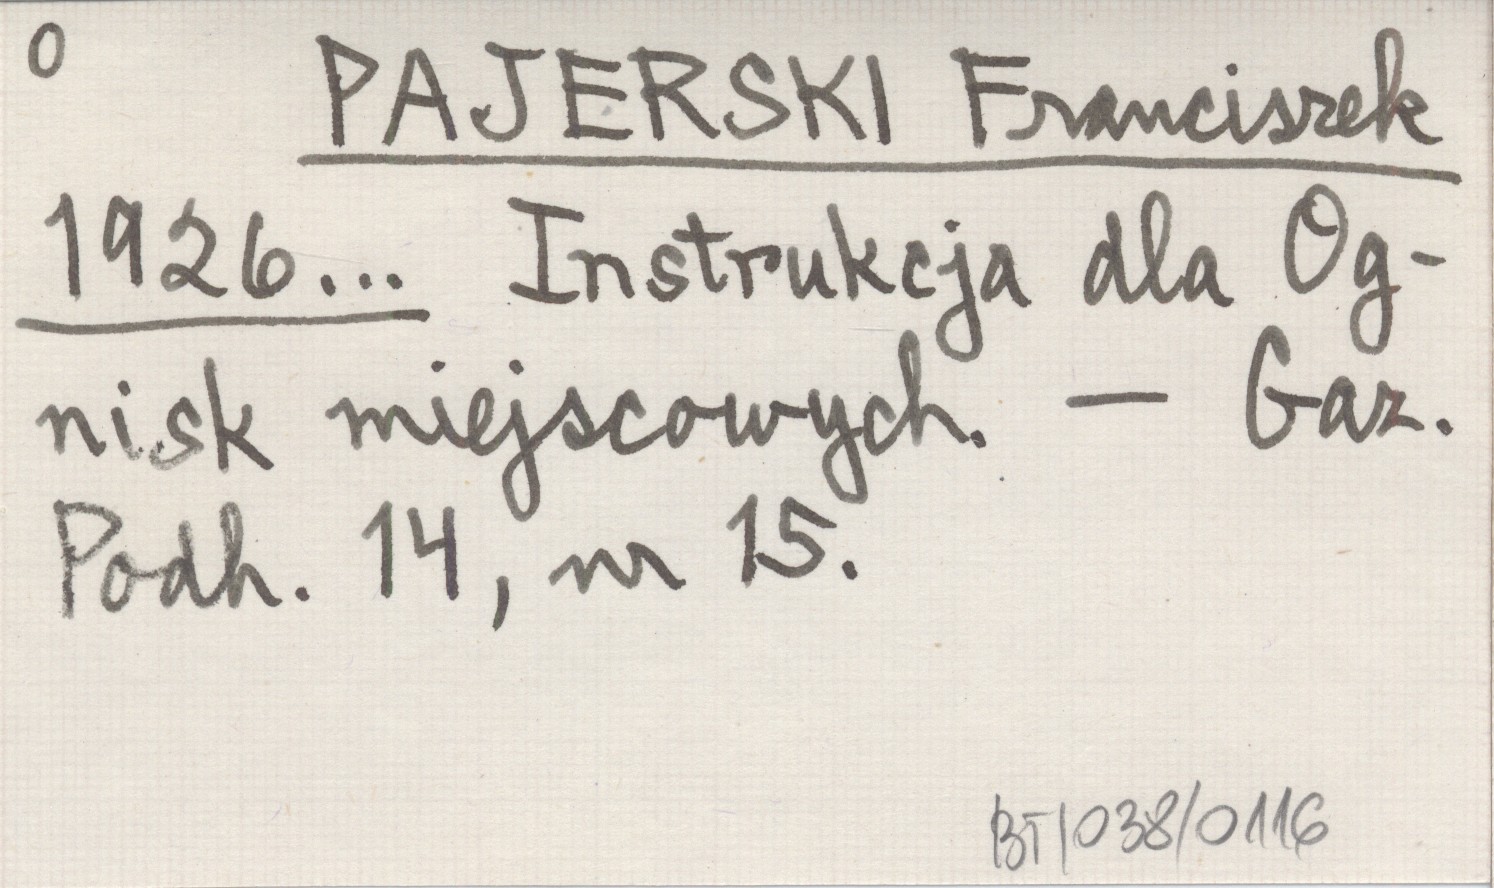 O PAJERSKI Franciszek
1926... Instrukcja dla Og-
nisk miejscowych. — Gaz.
Podh. 14, nr 15.
BT/038/0116